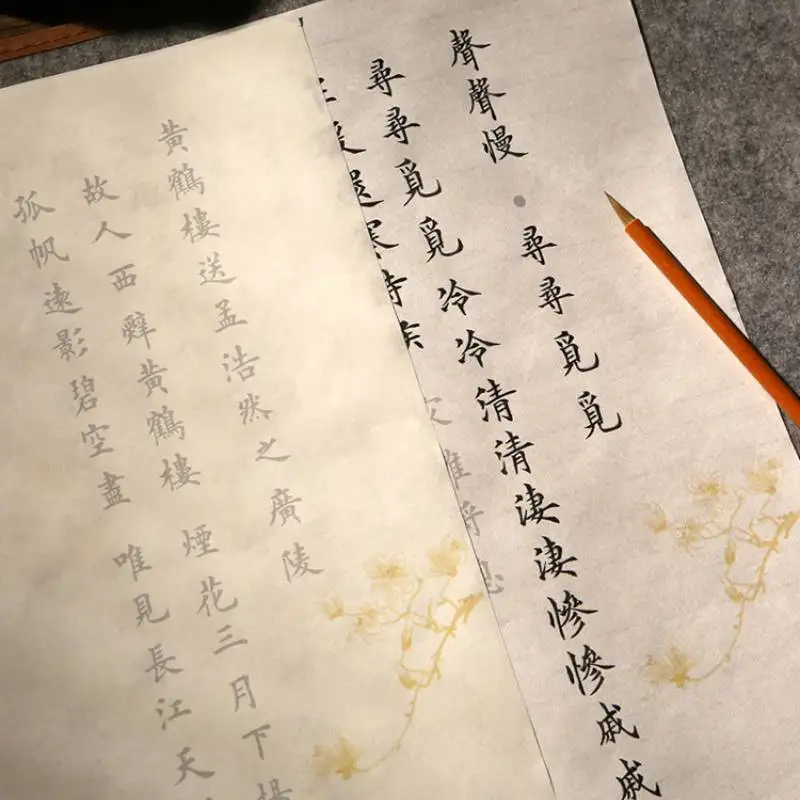 聲聲慢·尋尋覓覓
尋尋覓覓冷冷清清淒淒慘慘戚戚
暖還寒時候
黃鶴樓送孟浩然之廣陵
故人西辭黃鶴樓 煙花三月下揚
孤帆遠影碧空盡 唯見長江天